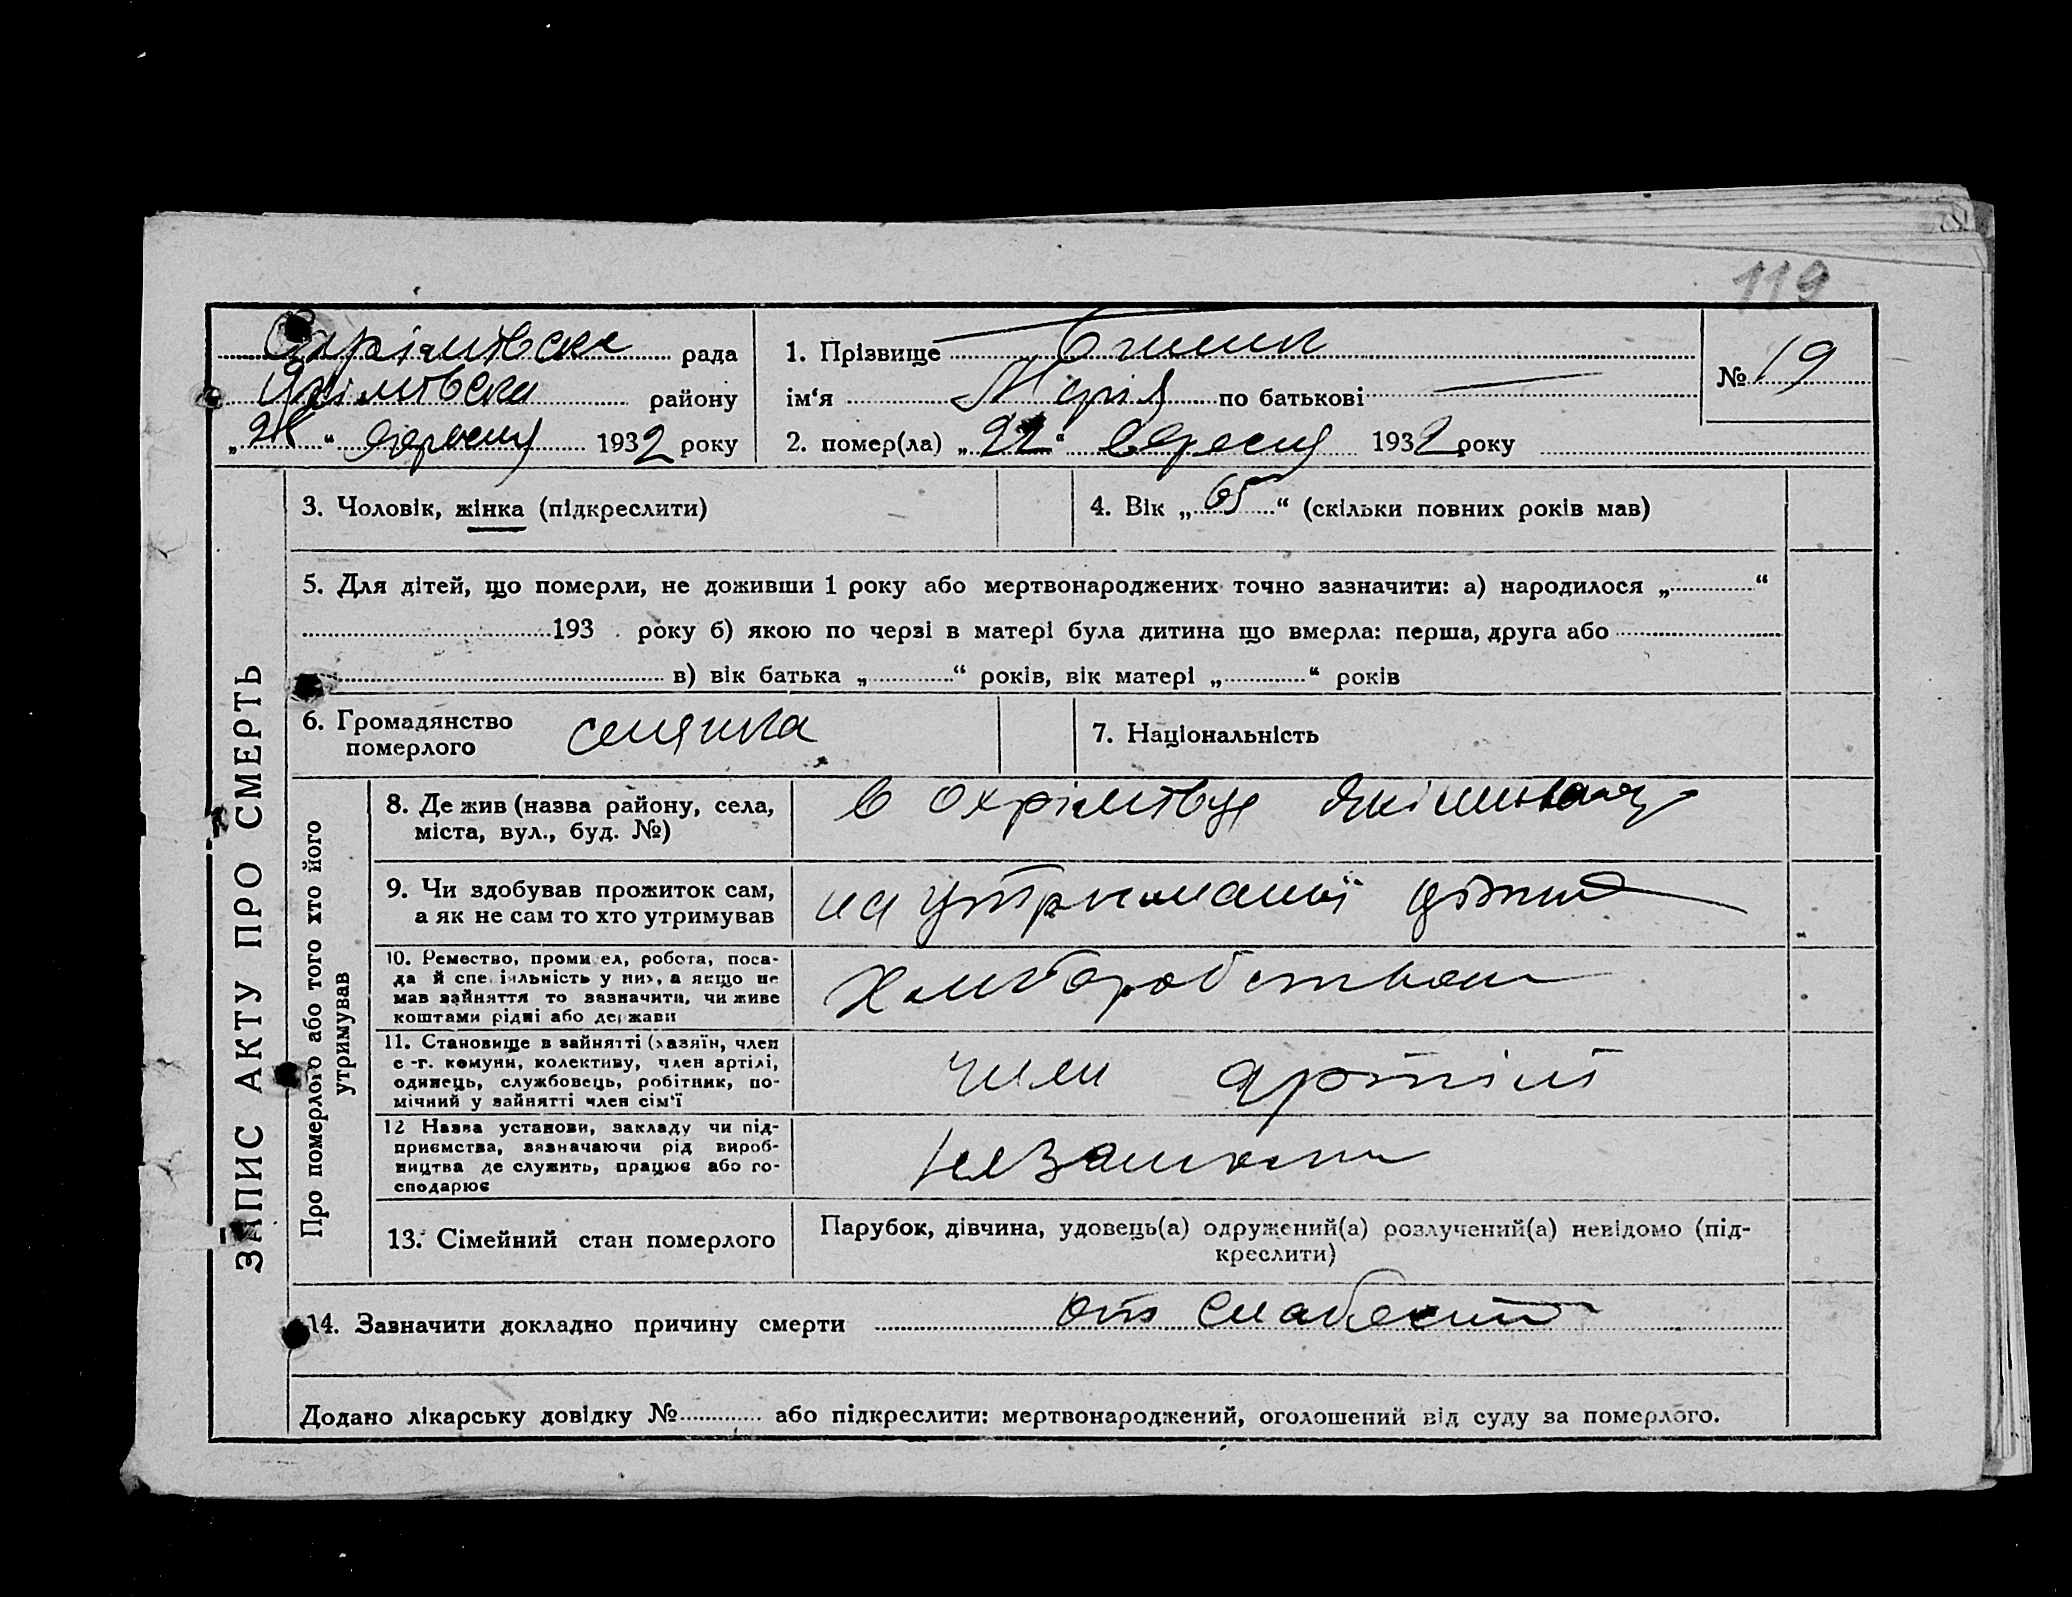 119
Охрімовска рада
Якимовська району
„28“ вересня 1932 року
1. Прізвище
№ 19
ім‘я Марія по батькові —
2. помер(ла) „22“ вересня 1932 року
ЗАПИС АКТУ ПРО СМЕРТЬ
3. Чоловік, жінка (підкреслити)
4. Вік „65“ (скільки повних років мав)
5. Для дітей, що померли, не доживши 1 року або мертвонароджених точно зазначити: а) народилося „ “
193 . року б) якою по черзі в матері була дитина що вмерла: перша, друга або
в) вік батька „ “ років, вік матері „ “ років
6. Громадянство
померлого
селянка
7. Національність
Про померлого або того хто його
утримував
8. Де жив (назва району, села,
міста, вул., буд. №)
в Охрімовці
9. Чи здобував прожиток сам,
а як не сам то хто утримував
на утриманні
10. Ремество, промисел, робота, поса-
да й спеціяльність у них, а якщо не
мав зайняття то зазначити, чи живе
коштами рідні або держави
Хліборобством
11. Становище в зайнятті (хазяїн, член
с-г. комуни, колективу, член артілі,
одинець, службовець, робітник, по-
мічний у зайнятті член сім‘ї
член артілі
12 Назва установи, закладу чи під-
приємства, зазначаючи рід вироб-
ництва де служить, працює або го-
сподарює
13. Сімейний стан померлого
Парубок, дівчина, удовець(а) одружений(а) розлучений(а) невідомо (під-
креслити)
14. Зазначити докладно причину смерти от слабости
Додано лікарську довідку № або підкреслити: мертвонароджений, оголошений від суду за померлого.